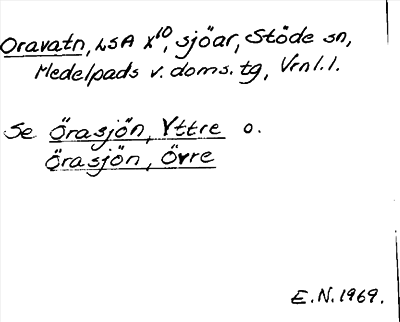 Oravatn, LSA X10, sjöar, Stöde sn,
Medelpads v. doms. tg, Vrnl. l.
Se Örasjön, Yttre o.
Örasjön, Övre
E.N. 1969.